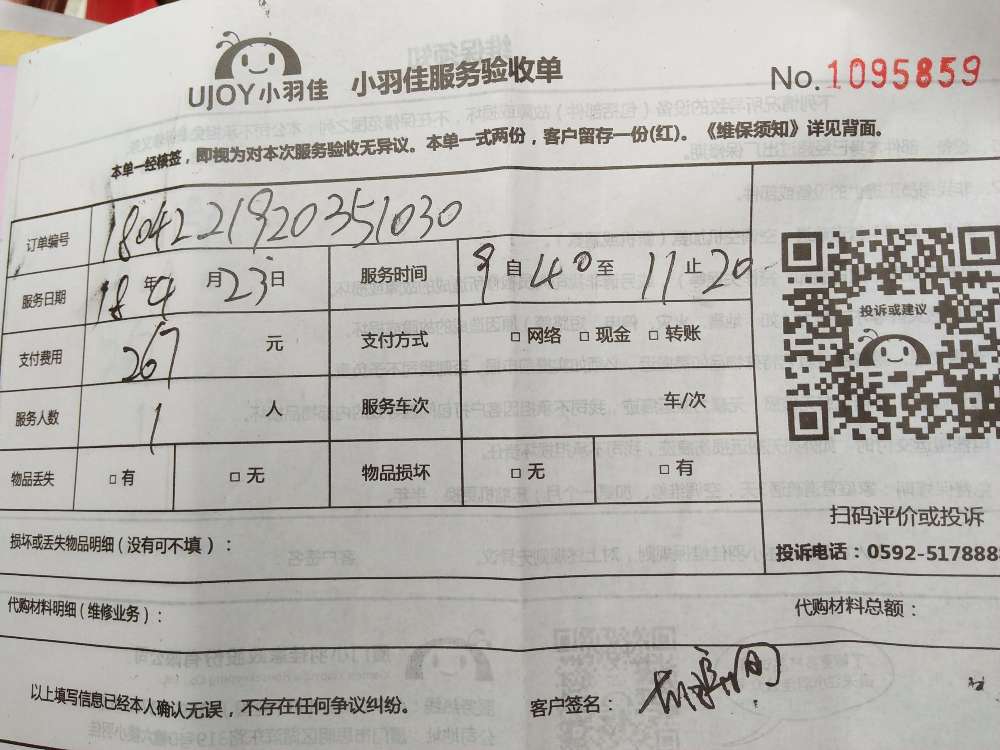 UJOY小羽佳 小羽佳服务验收单
No.1095859
本单一经核签，即视为对本次服务验收无异议。本单一式两份，客户留存一份(红)。《维保须知》详见背面。
订单编号 18042219920351030
服务日期 18年4月23日 服务时间 9自40至11止20
支付费用 267 元 支付方式 □网络 □现金 □转账
投诉或建议
服务人数 1 人 服务车次 车/次
物品丢失 □有 □无 物品损坏 □无 □有
扫码评价或投诉
投诉电话：0592-5178885
损坏或丢失物品明细（没有可不填）：
代购材料明细（维修业务）： 代购材料总额：
以上填写信息已经本人确认无误，不存在任何争议纠纷。 客户签名：